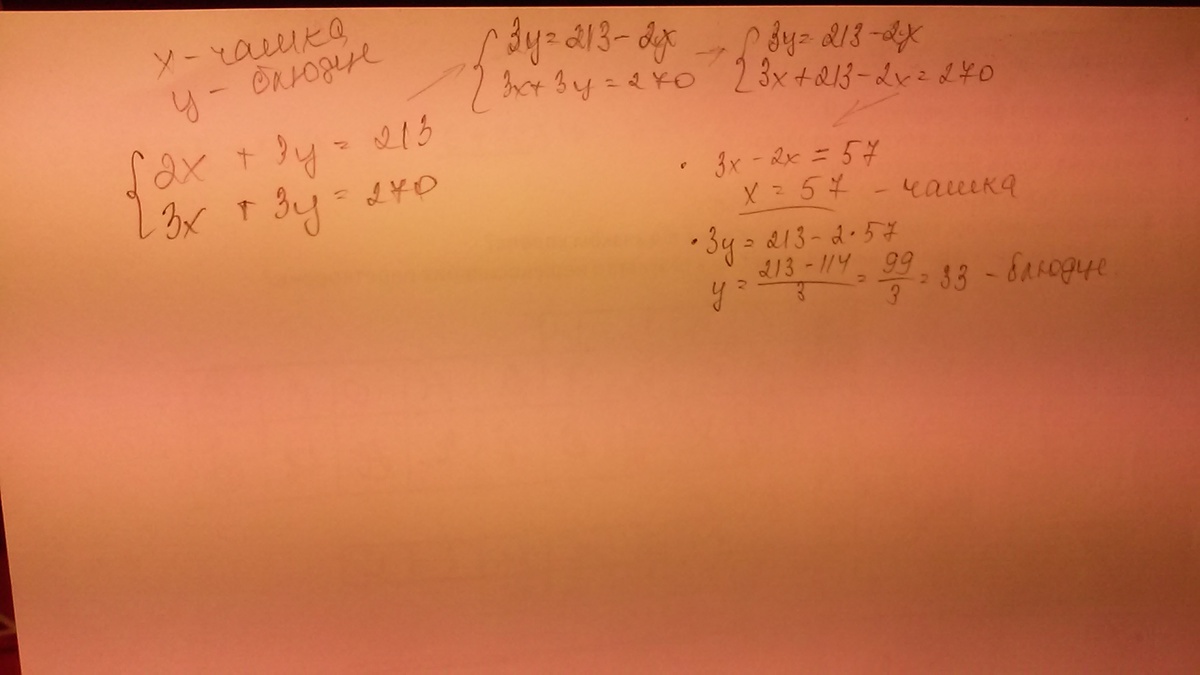 x - чашка
y - блюдце
{2x + 3y = 213
{3x + 3y = 270
{3y = 213 - 2x
{3x + 3y = 270
{3y = 213 - 2x
{3x + 213 - 2x = 270
• 3x - 2x = 57
x = 57 - чашка
• 3y = 213 - 2 • 57
y = (213 - 114)/3 = 99/3 = 33 - блюдце